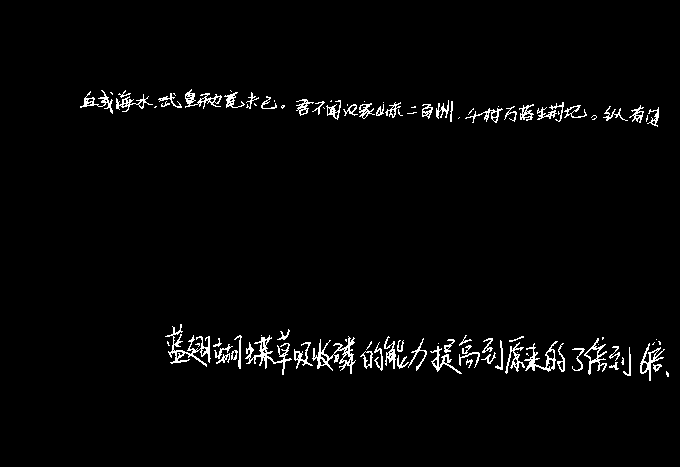 血成海水,武皇开边意未已。君不闻汉家山东二百州,千村万落生荆杞。纵有健
蓝翅蝴蝶草吸收磷的能力提高到原来的3倍到6倍、